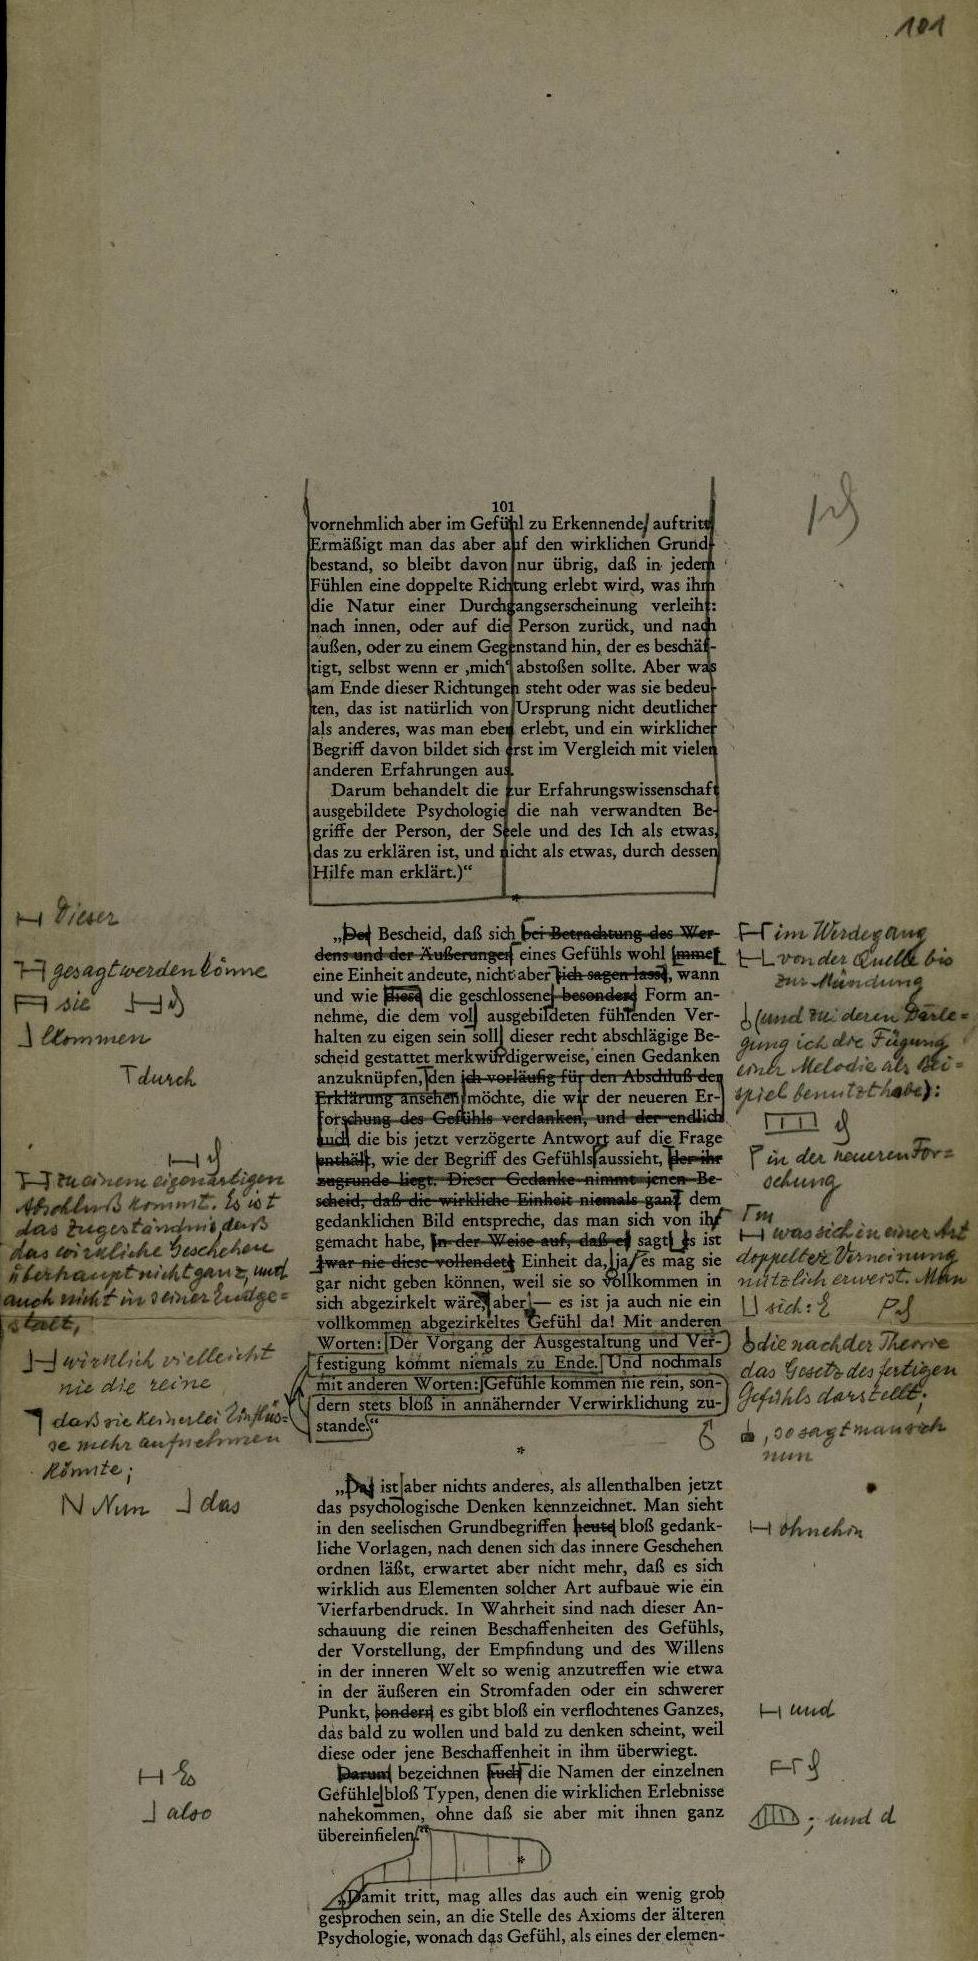 101
101
vornehmlich aber im Gefühl zu Erkennende, auftritt.
Ermäßigt man das aber auf den wirklichen Grund-
bestand, so bleibt davon nur übrig, daß in jedem
Fühlen eine doppelte Richtung erlebt wird, was ihm
die Natur einer Durchgangserscheinung verleiht:
nach innen, oder auf die Person zurück, und nach
außen, oder zu einem Gegenstand hin, der es beschäf-
tigt, selbst wenn er ‚mich‘ abstoßen sollte. Aber was
am Ende dieser Richtungen steht oder was sie bedeu-
ten, das ist natürlich von Ursprung nicht deutlicher
als anderes, was man eben erlebt, und ein wirklicher
Begriff davon bildet sich erst im Vergleich mit vielen
anderen Erfahrungen aus.
Darum behandelt die zur Erfahrungswissenschaft
ausgebildete Psychologie die nah verwandten Be-
griffe der Person, der Seele und des Ich als etwas,
das zu erklären ist, und nicht als etwas, durch dessen
Hilfe man erklärt.)“
*
„Der Bescheid, daß sich bei Betrachtung des Wer-
dens und der Äußerungen eines Gefühls wohl immer
eine Einheit andeute, nicht aber sich sagen lasse, wann
und wie diese die geschlossene besondere Form an-
nehme, die dem voll ausgebildeten fühlenden Ver-
halten zu eigen sein soll, dieser recht abschlägige Be-
scheid gestattet merkwürdigerweise, einen Gedanken
anzuknüpfen, den ich vorläufig für den Abschluß der
Erklärung ansehen möchte, die wir der neueren Er-
forschung des Gefühls verdanken, und der endlich
auch die bis jetzt verzögerte Antwort auf die Frage
enthält, wie der Begriff des Gefühls aussieht, der ihr
zugrunde liegt. Dieser Gedanke nimmt jenen Be-
scheid, daß die wirkliche Einheit niemals ganz dem
gedanklichen Bild entspreche, das man sich von ihr
gemacht habe, in der Weise auf, daß er sagt: es ist
zwar nie diese vollendete Einheit da, ja, es mag sie
gar nicht geben können, weil sie so vollkommen in
sich abgezirkelt wäre, aber — es ist ja auch nie ein
vollkommen abgezirkeltes Gefühl da! Mit anderen
Worten: Der Vorgang der Ausgestaltung und Ver-
festigung kommt niemals zu Ende. Und nochmals
mit anderen Worten: Gefühle kommen nie rein, son-
dern stets bloß in annähernder Verwirklichung zu-
stande.“
*
„Das ist aber nichts anderes, als allenthalben jetzt
das psychologische Denken kennzeichnet. Man sieht
in den seelischen Grundbegriffen heute bloß gedank-
liche Vorlagen, nach denen sich das innere Geschehen
ordnen läßt, erwartet aber nicht mehr, daß es sich
wirklich aus Elementen solcher Art aufbaue wie ein
Vierfarbendruck. In Wahrheit sind nach dieser An-
schauung die reinen Beschaffenheiten des Gefühls,
der Vorstellung, der Empfindung und des Willens
in der inneren Welt so wenig anzutreffen wie etwa
in der äußeren ein Stromfaden oder ein schwerer
Punkt, sondern es gibt bloß ein verflochtenes Ganzes,
das bald zu wollen und bald zu denken scheint, weil
diese oder jene Beschaffenheit in ihm überwiegt.
Darum bezeichnen auch die Namen der einzelnen
Gefühle bloß Typen, denen die wirklichen Erlebnisse
nahekommen, ohne daß sie aber mit ihnen ganz
übereinfielen.“
*
„Damit tritt, mag alles das auch ein wenig grob
gesprochen sein, an die Stelle des Axioms der älteren
Psychologie, wonach das Gefühl, als eines der elemen-
Dieser
gesagt werden könne
sie
kommen
durch
zu einem eigenartigen
Abschluß kommt. Es ist
das Zugeständnis, daß
das wirkliche Geschehen
überhaupt nicht ganz, und
auch nicht in seiner Endge-
stalt,
wirklich vielleicht
nie die reine
daß sie keinerlei Einflüs-
se mehr aufnehmen
könnte;
Nun
das
Es
also
im Werdegang
von der Quelle bis
zur Mündung
(und zu deren Darle-
gung ich die Fügung
einer Melodie als Bei-
spiel benutzt habe):
in der neueren For-
schung
m
was sich in einer Art
doppelter Verneinung
nützlich erweist. Man
sich: E
die nach der Theorie
das Gesetz des fertigen
Gefühls darstellt;
, so sagt man sich
nun
ohnehin
und
; und d